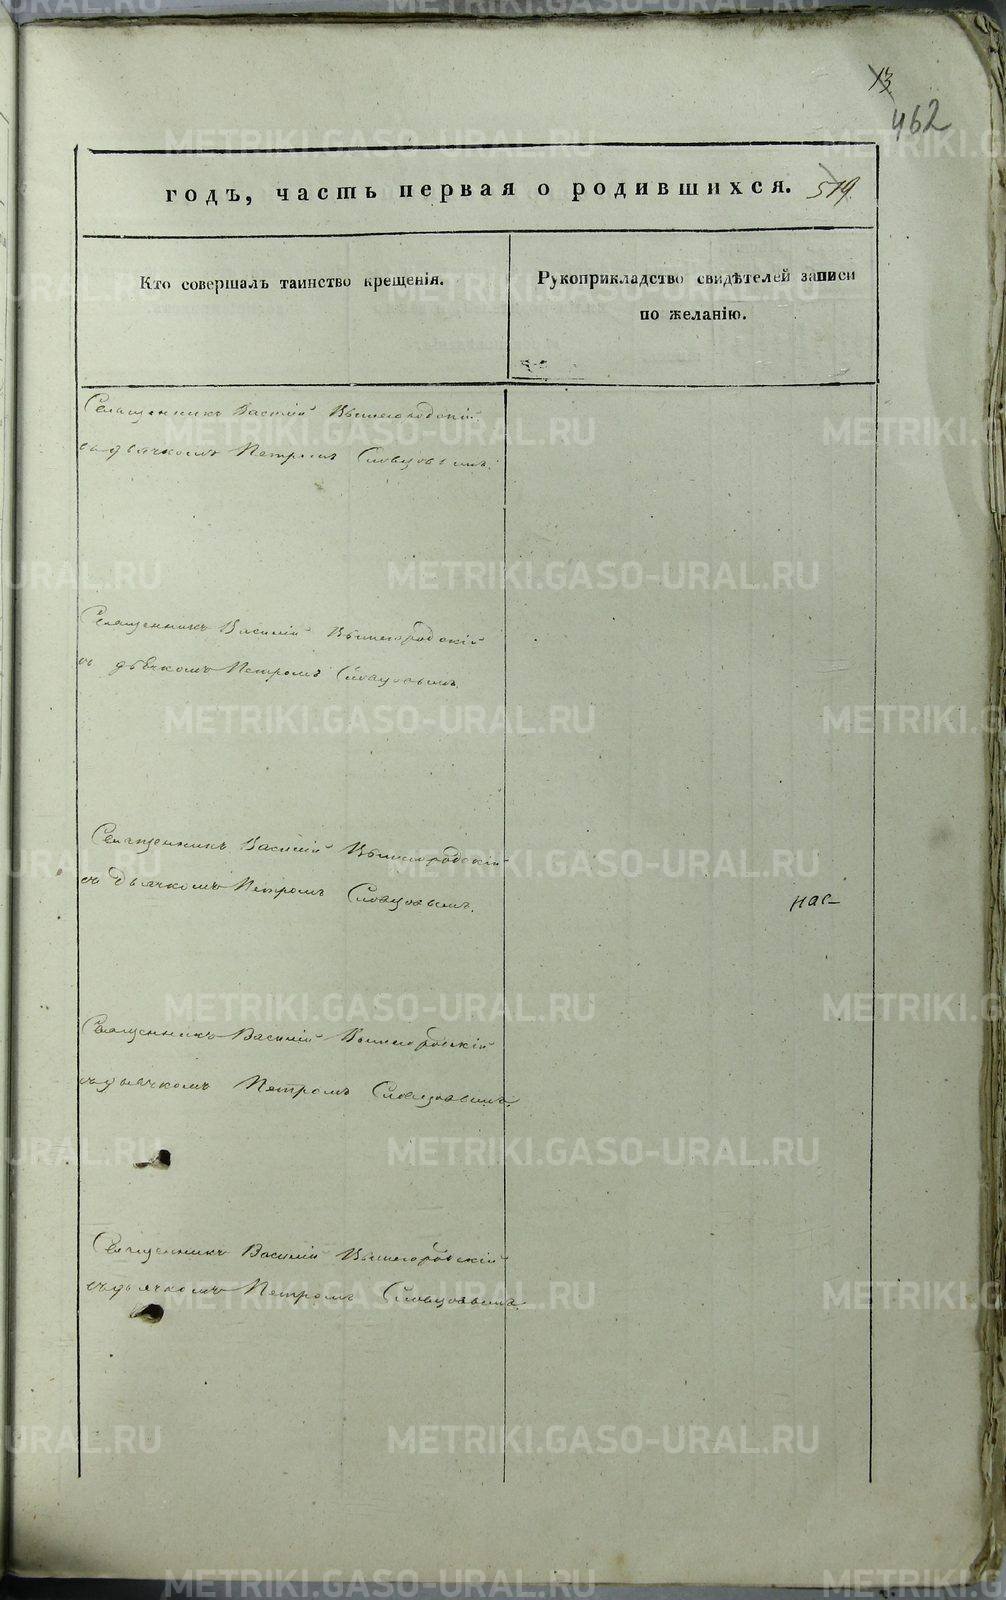 13
462
годъ, часть первая о родившихся. 519
Кто совершалъ таинство крещенія.
Рукоприкладство свидѣтелей записи
по желанію.
Священникъ Василій Вышегородскій
съ дьячкомъ Петромъ Словцовымъ.
Священникъ Василій Вышегородскій
съ дьячкомъ Петромъ Словцовымъ.
Священникъ Василій Вышегородскій
съ дьячкомъ Петромъ Словцовымъ.
нас-
Священникъ Василій Вышегородскій
съ дьячкомъ Петромъ Словцовымъ.
Священникъ Василій Вышегородскій
съ дьячкомъ Петромъ Словцовымъ.
METRIKI.GASO-URAL.RU